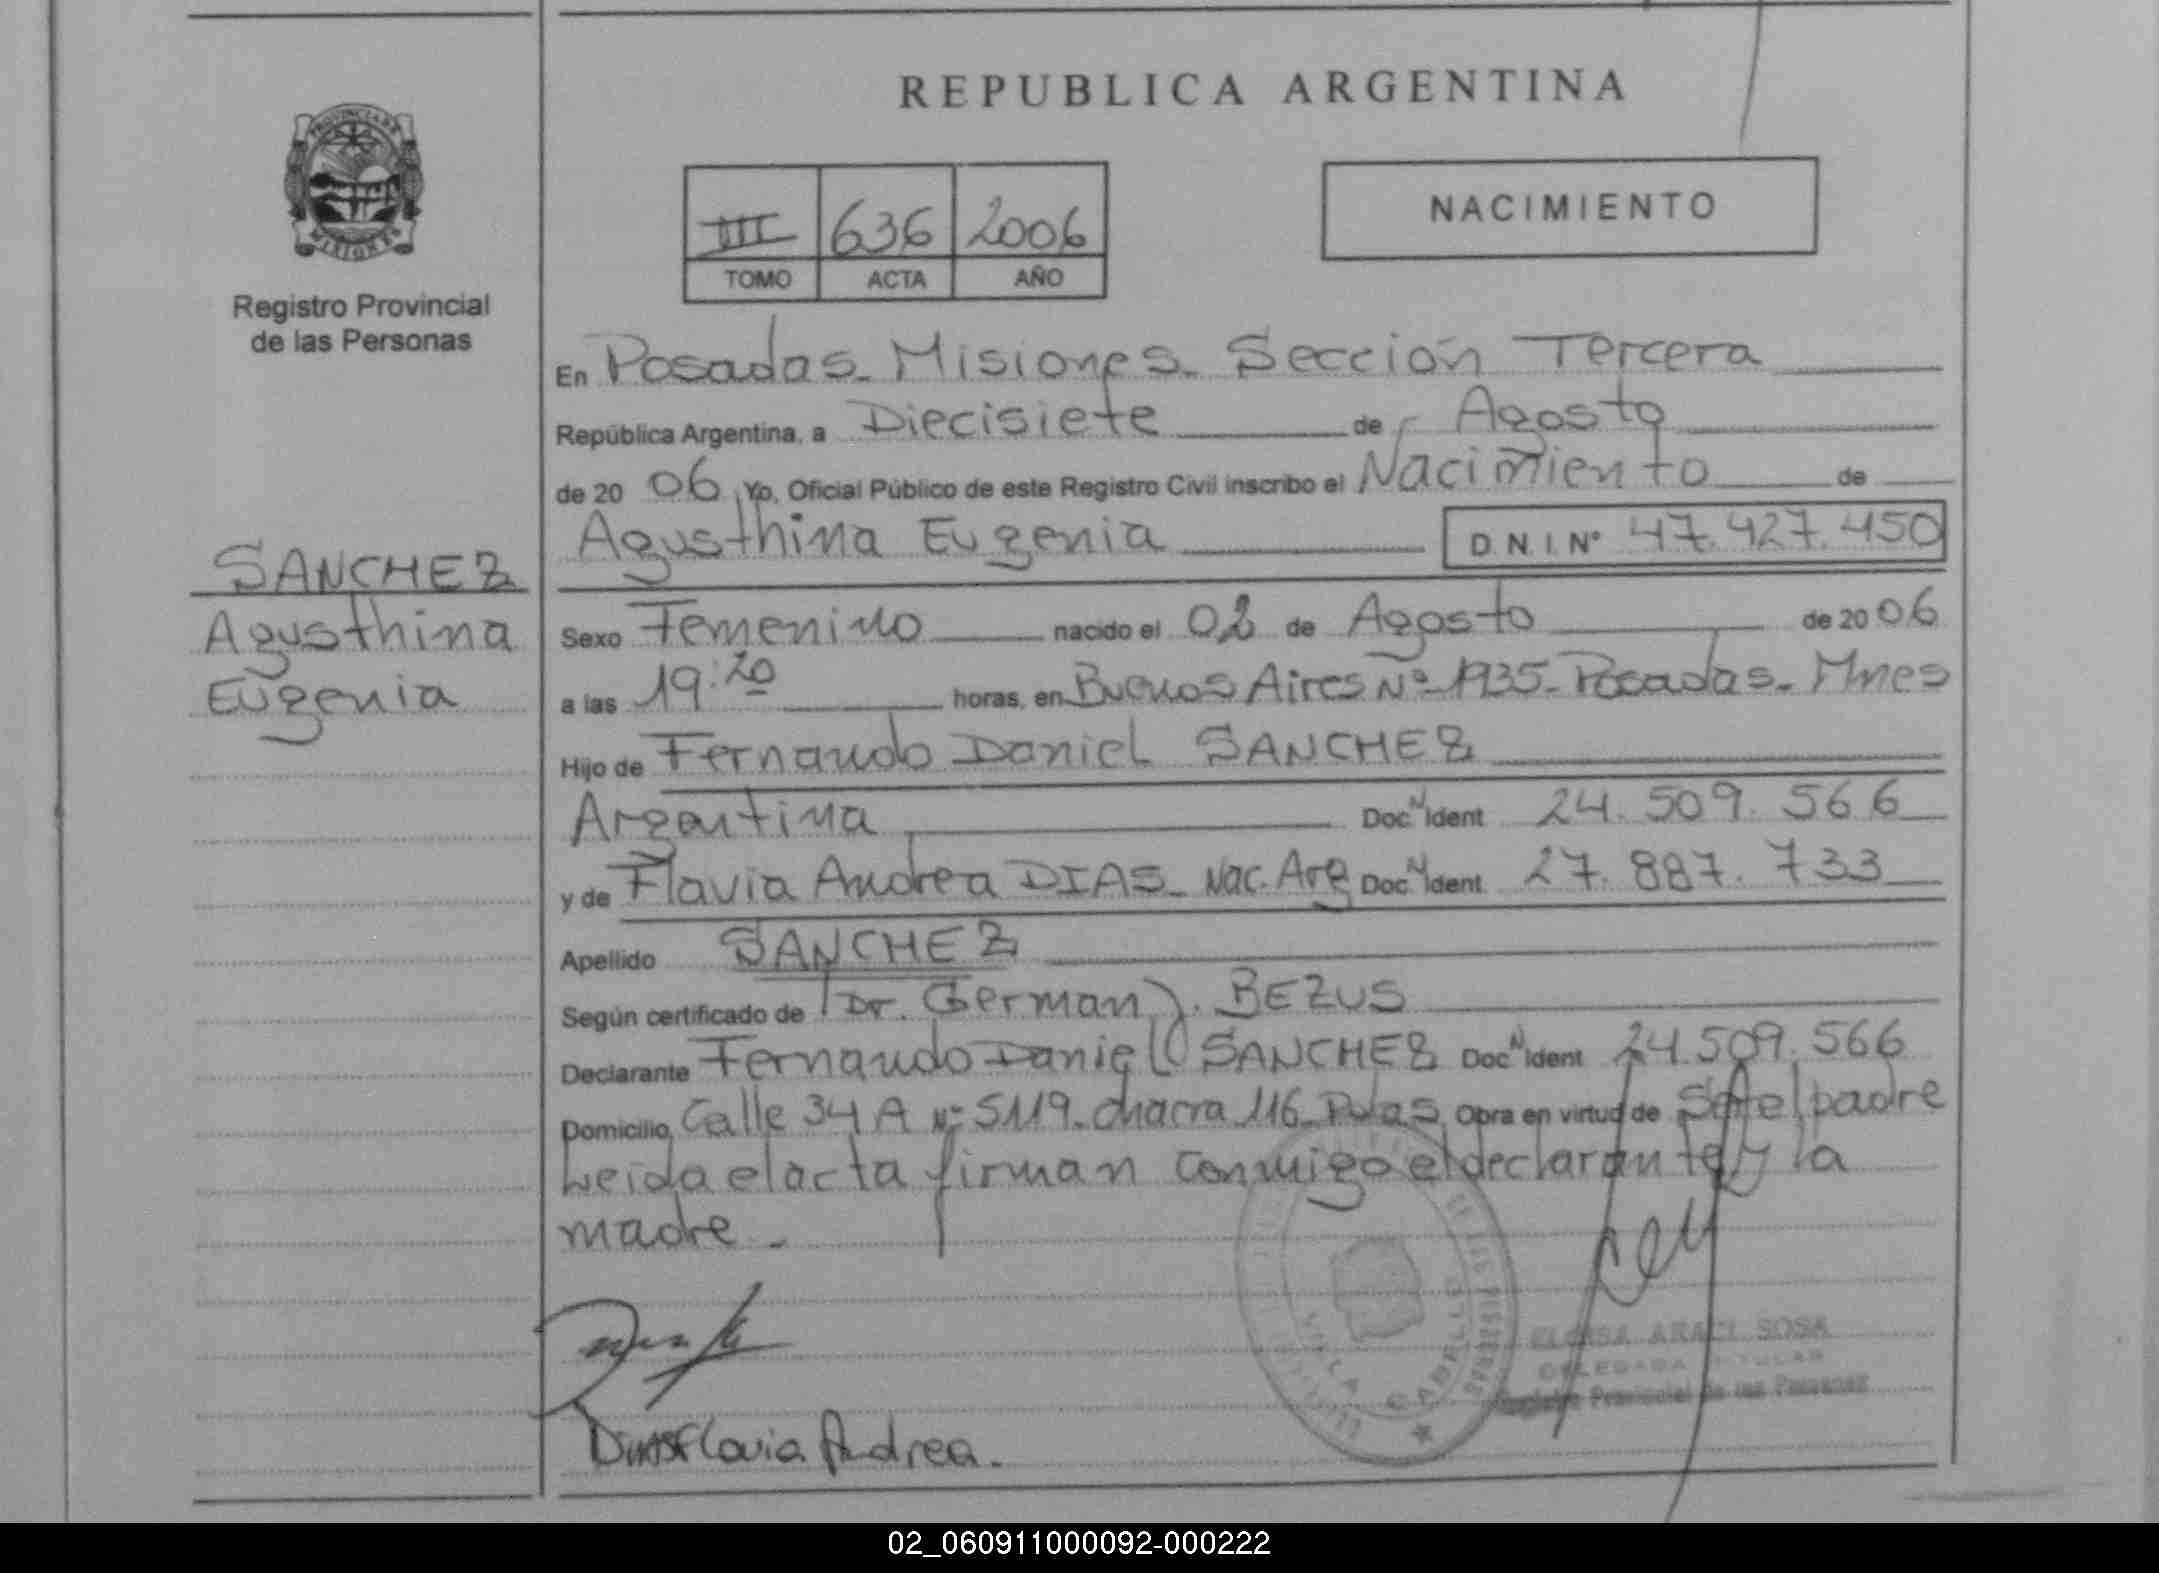 REPUBLICA ARGENTINA
PROVINCIA DE
MISIONES
Registro Provincial
de las Personas
III 636 2006
TOMO ACTA AÑO
NACIMIENTO
En Posadas - Misiones - Sección Tercera
República Argentina, a Diecisiete de Agosto
de 20 06 Yo, Oficial Público de este Registro Civil inscribo el Nacimiento de
Agusthina Eugenia D.N.I. N° 47.427.450
SANCHEZ
Agusthina
Eugenia
Sexo Femenino nacido el 02 de Agosto de 20 06
a las 19:20 horas, en Buenos Aires Nº 1935 - Posadas - Mnes
Hijo de Fernando Daniel SANCHEZ
Argentina Doc N Ident 24.509.566
y de Flavia Andrea DIAS - Nac. Arg Doc N Ident. 27.887.733
Apellido SANCHEZ
Según certificado de Dr. German J. BEZUS
Declarante Fernando Daniel SANCHEZ Doc N Ident 24.509.566
Domicilio Calle 34 A Nº 5119 - chacra 116 - Pdas Obra en virtud de Ser el padre
Leida el acta firman conmigo el declarante y la
madre -
DIAS Flavia Andrea.
VILLA CABELLO
DE LAS PERSONAS
ELOISA ARACI SOSA
DELEGADA TITULAR
Registro Provincial de las Personas
02_060911000092-000222